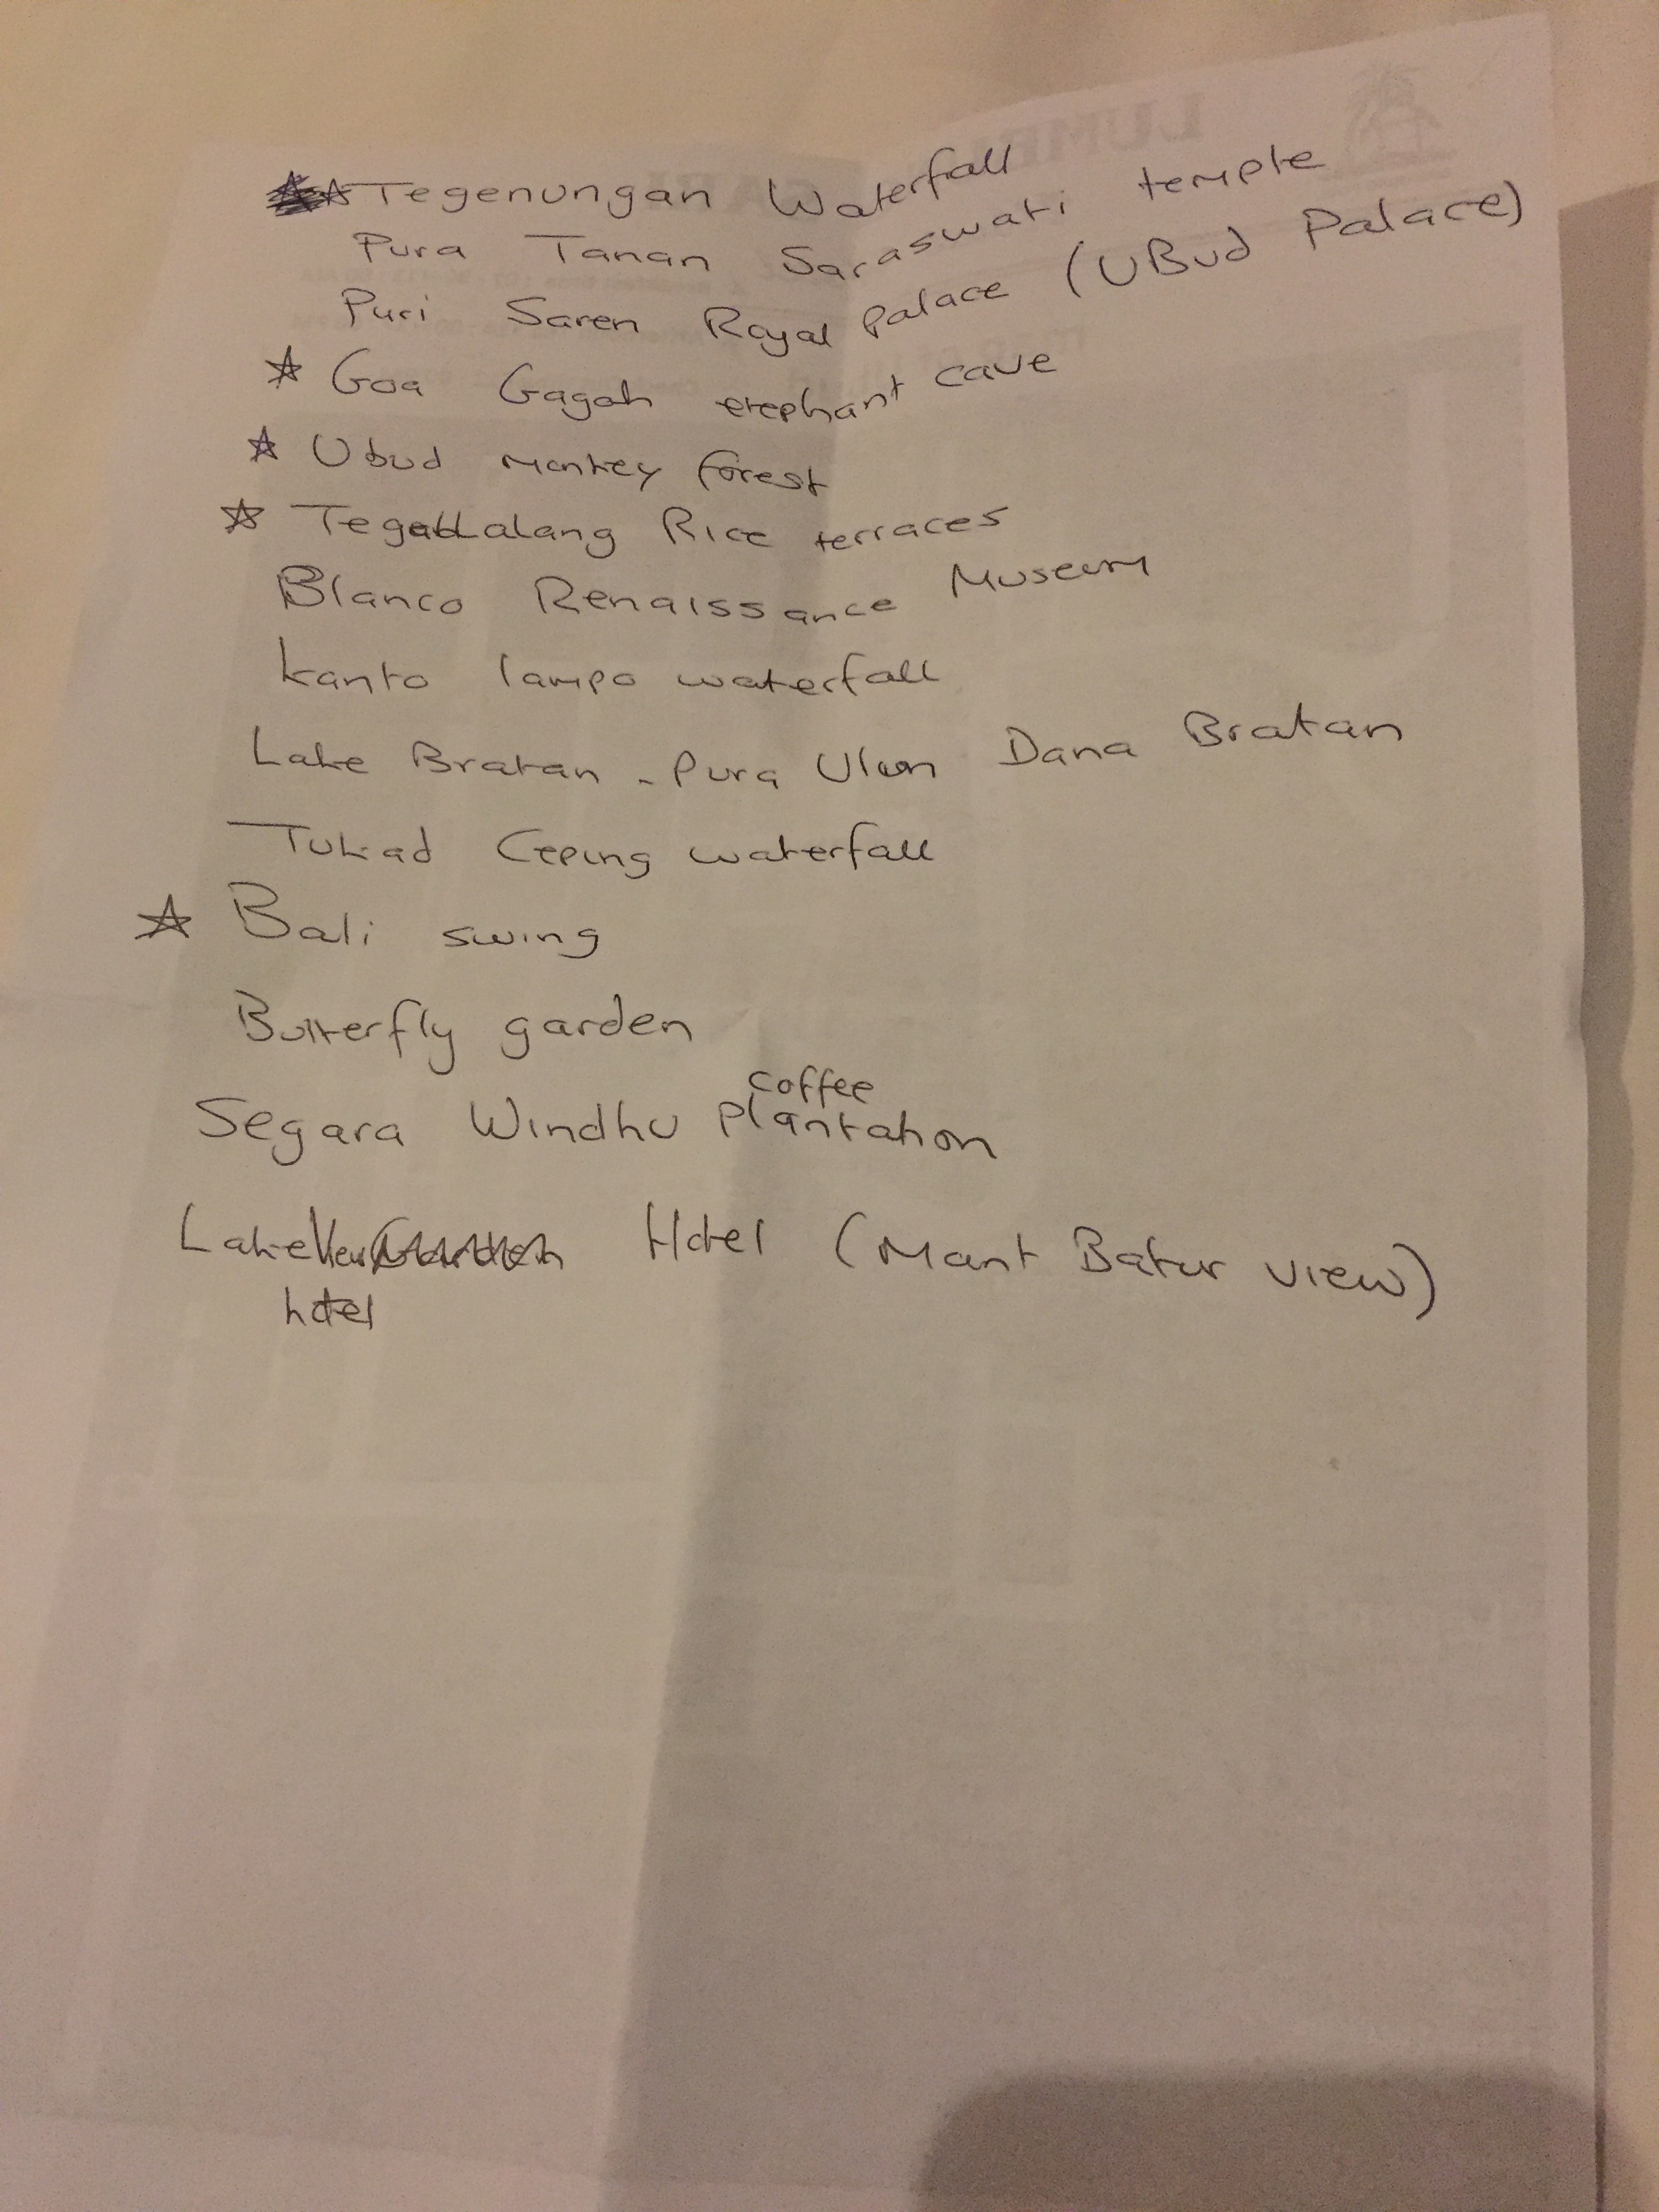 ☆ Tegenungan Waterfall
Pura Tanan Saraswati temple
Puri Saren Royal Palace (UBud Palace)
☆ Goa Gagah elephant cave
☆ Ubud Monkey forest
☆ Tegallalang Rice terraces
Blanco Renaissance Museum
Kanto lampo waterfall
Lake Bratan - Pura Ulun Dana Bratan
Tukad Ceping waterfall
☆ Bali swing
Butterfly garden
Segara Windhu coffee Plantation
LakeView Hotel (Mant Batur view)
hotel